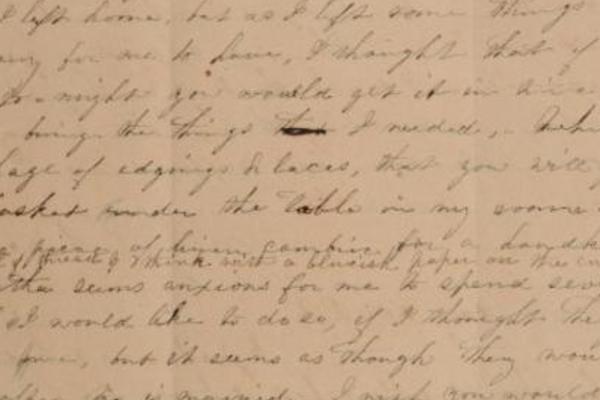 I left home, but as I left some things
for me to have, I thought that if
to-night you would get it in
bring the things I needed,
of edgings & laces, that you will
basket under the table in my room
piece of linen cambric for a
I think with a bluish paper on the
seems anxious for me to spend
I would like to do so, if I thought the
but it seems as though they
is married. I wish you would